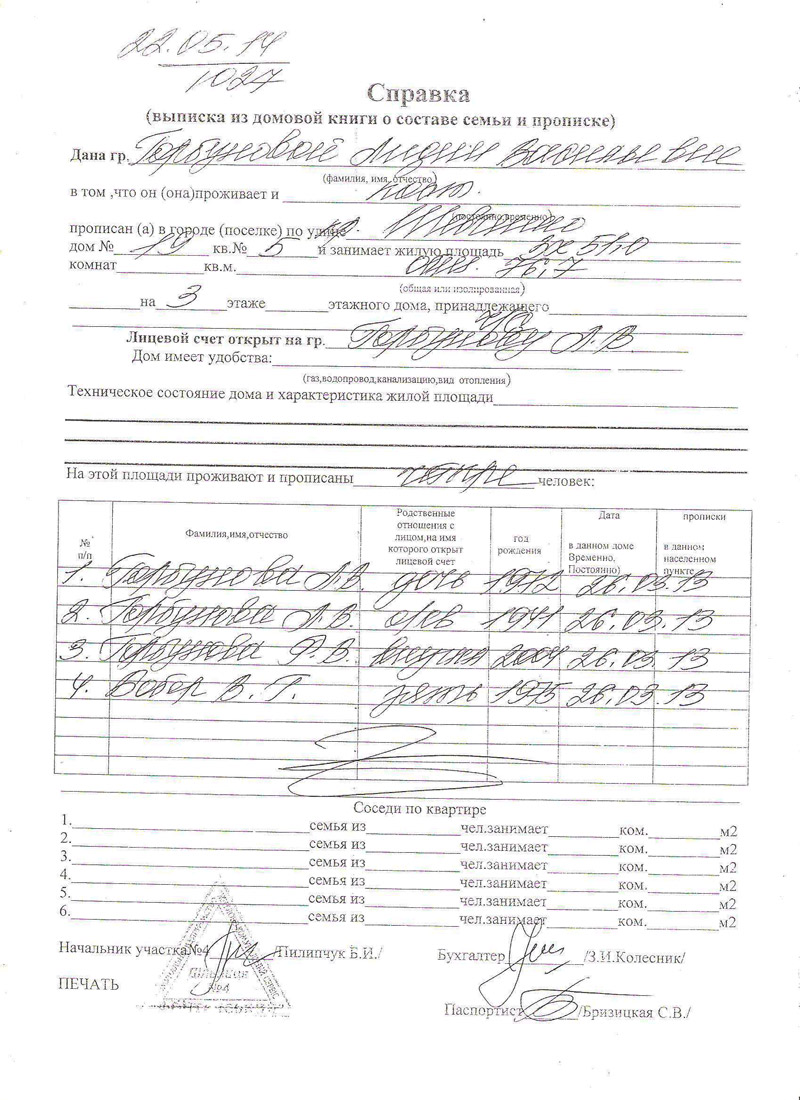 22.05.14
1027
Справка
(выписка из домовой книги о составе семьи и прописке)
Дана гр. Горбуновой Лидии
(фамилия, имя, отчество)
в том ,что он (она)проживает и пост.
(постоянно,временно)
прописан (а) в городе (поселке) по улице
дом № 19 кв.№ 5 и занимает жилую площадь 3х 51,0
комнат кв.м. общ. 76,7
(общая или изолированная)
на 3 этаже этажного дома, принадлежащего
Лицевой счет открыт на гр. Горбунову Л.В.
Дом имеет удобства:
(газ,водопровод,канализацию,вид отопления)
Техническое состояние дома и характеристика жилой площади
На этой площади проживают и прописаны четыре человек:
№ п/п Фамилия,имя,отчество Родственные отношения с лицом,на имя которого открыт лицевой счет год рождения Дата прописки
в данном доме Временно, Постоянно) в данном населенном пункте
1. Горбунова Л.В. дочь 1972 26.03.13
2. Горбунова Л.В. 1941 26.03.13
3. Горбунова Р.В. внучка 2004 26.03.13
4. Бобор В.Г. зять 1975 26.03.13
Соседи по квартире
1. семья из чел.занимает ком. м2
2. семья из чел.занимает ком. м2
3. семья из чел.занимает ком. м2
4. семья из чел.занимает ком. м2
5. семья из чел.занимает ком. м2
6. семья из чел.занимает ком. м2
Начальник участка№4 /Пилипчук Б.И./ Бухгалтер /З.И.Колесник/
Дільниця
№4
ПЕЧАТЬ
Паспортист /Бризицкая С.В./